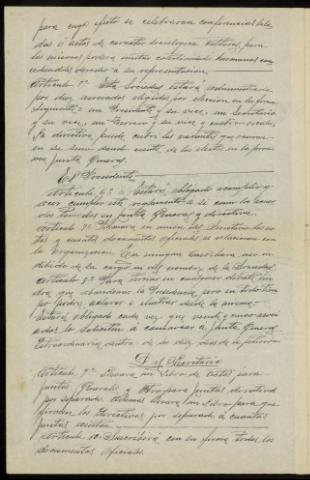 para cuyo efecto se celebraran conferencias vela-
das ó actos de caracter sociologico cultural, para
los mismos podra invitar colectividades hermanas con-
cediendoles derecho a su representacion.
Articulo 5º Esta Sociedad estará administrada
por diez asociados elegidos por eleccion en la forma
siguiente, un Presidente y su vice, un Secretario
y su vice, un Tesorero y su vice y cuatro vocales,
La directiva puede cubrir las vacantes que ocurran
en su seno dando cuenta de los electos en la proxi-
ma Junta General.
El Presidente
Articulo 6º Estará obligado a cumplir y
hacer cumplir este reglamento asi como los acuer-
dos tomados en Junta General y directiva.
Articulo 7º Firmará en union del Secretario las ac-
tas y cuantos documentos oficiales se relacionen con
la organizacion. En ninguna
de su cargo en del nombre de la Sociedad.
Articulo 8º Para tomar en cualquier debate ten-
dra que abandonar la Presidencia pero en todo tiem-
po podra, aclarar é ilustrar desde la misma.
Estará obligado cada vez que veinte y cinco asoci-
ados lo soliciten a convocar a Junta General
Extraordinaria dentro de los diez dias de la peticion
Del Secretario
Articulo 9º Llevará un Libro de Actas para
Juntas Generales y otro para Juntas directivas
por separado. Ademas llevará un Libro para que
firmen los Directivos por separado á cuantas
Juntas asistan
Articulo 10. Suscribirá con su firma todos los
documentos oficiales.